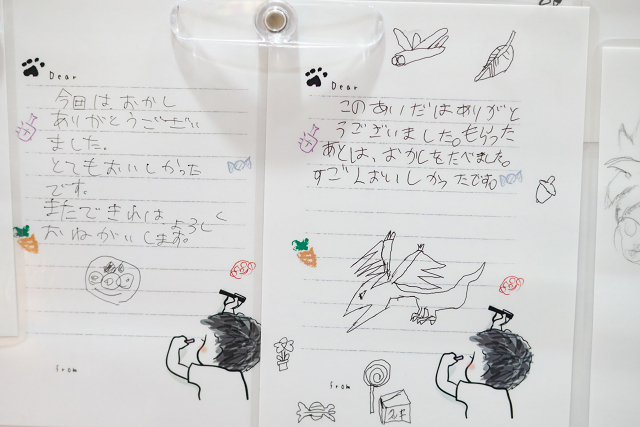 Dear
今回は、おかし
ありがとうござい
ました。
とてもおいしかった
です。
またできれは よろしく
おねがいします。
from
Dear
このあいだはありがと
うございました。もらった
あとは、おかしをたべました。
すごくおいしかったです。
from